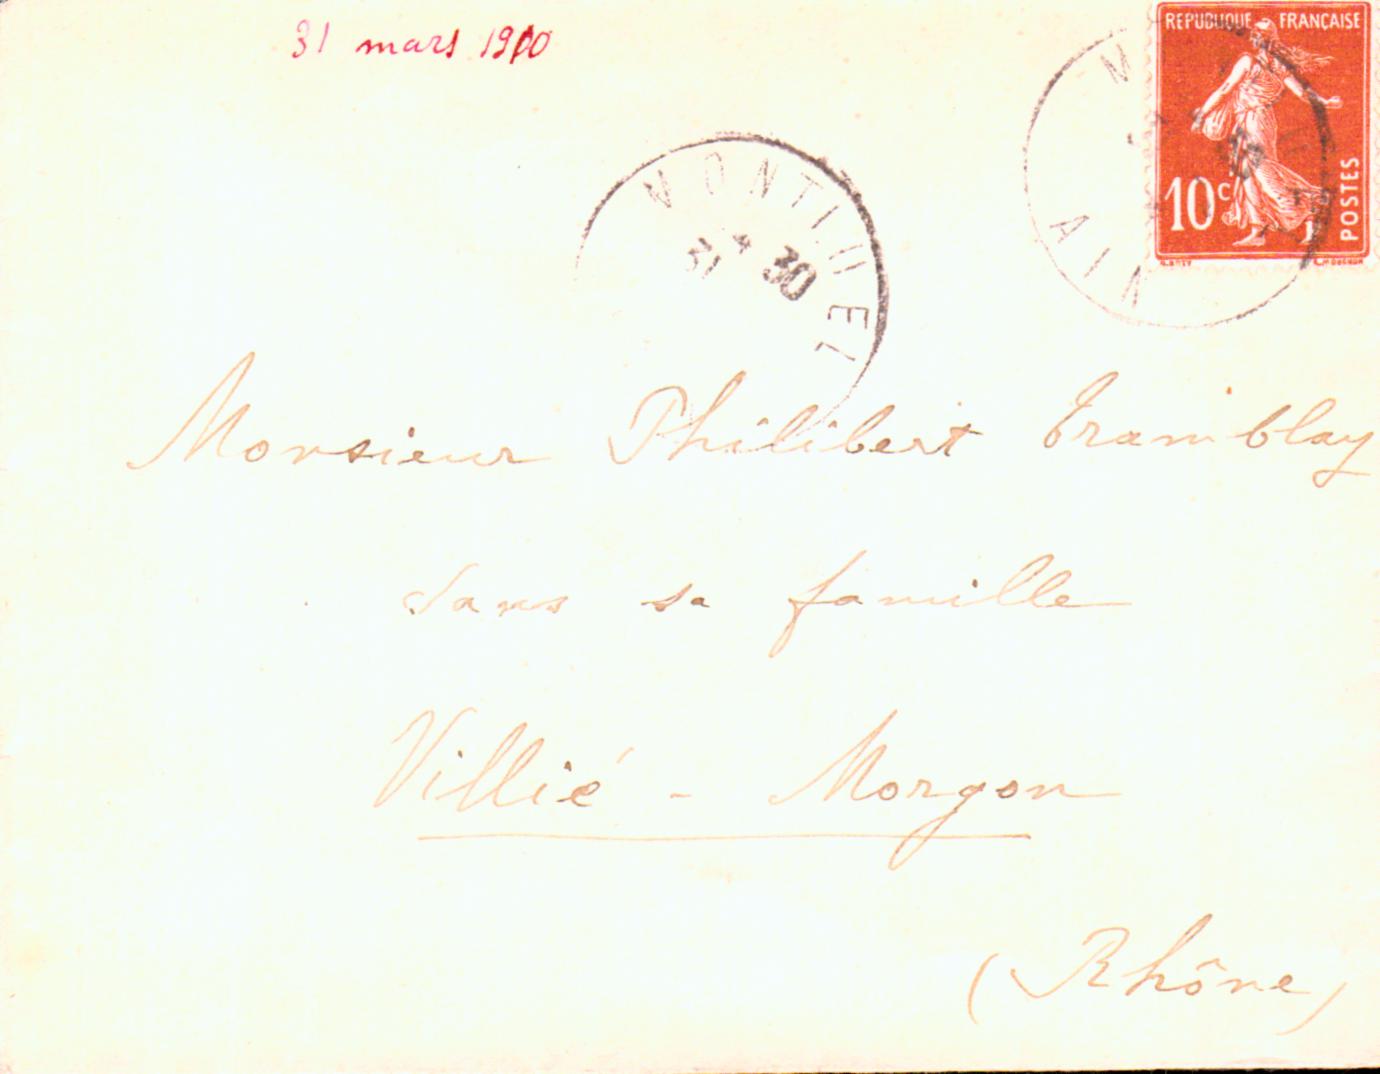 31 mars 1910
REPUBLIQUE FRANÇAISE
10c
POSTES
MONTLUEL
31 4 30
AIN
Monsieur Philibert Tramblay
dans sa famille
Villié - Morgon
(Rhône)